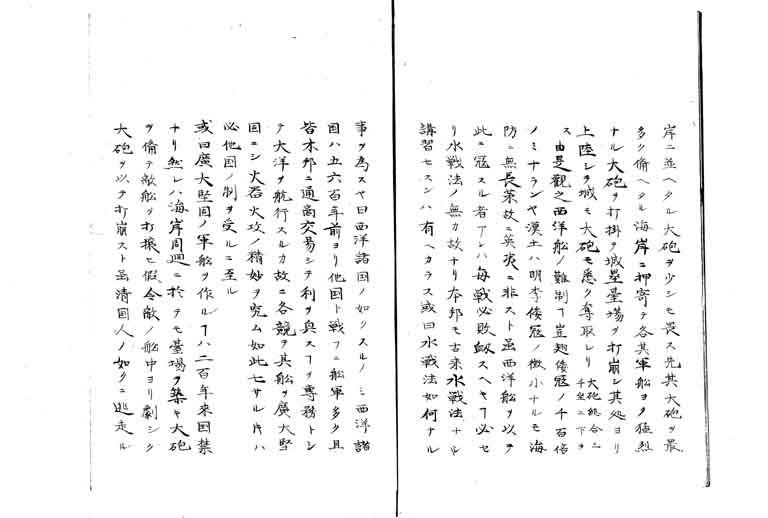 岸ニ並ヘタル大砲ヲ少シモ畏ス先其大砲ヲ最
多ク備ヘタル海岸ニ押寄テ各其軍船ヨリ猛烈
ナル大砲ヲ打掛ケ城塁臺場ヲ打崩シ其処ヨリ
上陸シテ城モ大砲モ悉ク奪取レリ 大砲総合ニ千坐ニ下ラ
ス 由是觀之西洋船ノ難制ヿ豈翅倭冦ノ千百倍
ノミナランヤ漢土ハ明季倭冦ノ微小ナルモ海
防ニ無長策故ニ英夷ニ非スト虽西洋船ヲ以テ
此ニ冦スル者アレハ毎戦必敗衂スヘキヿ必セ
リ水戦法ノ無カ故ナリ本邦モ古来水戦法ナル
講習セスンハ有ヘカラス或曰水戦法如何ナル
事ヲ為スヤ曰西洋諸国ノ如クスルノミ西洋諸
国ハ五六百年前ヨリ他国ト戦フニ船軍多ク且
皆本邦ニ通商交易シテ利ヲ興スヿヲ専務トシ
テ大洋ヲ航行スルカ故ニ各競テ其船ヲ廣大堅
固ニシ火器火攻ノ精妙ヲ究ム如此セサル片ハ
必他国ノ制ヲ受ルニ至ル
或曰廣大堅固ノ軍船ヲ作ルヿハ二百年来国禁
ナリ然レハ海岸周廻ニ於テモ臺場ヲ築キ大砲
ヲ備テ敵船ヲ打攘ヒ假令敵ノ船中ヨリ劇シク
大砲ヲ以テ打崩スト虽清国人ノ如クニ逃走ル